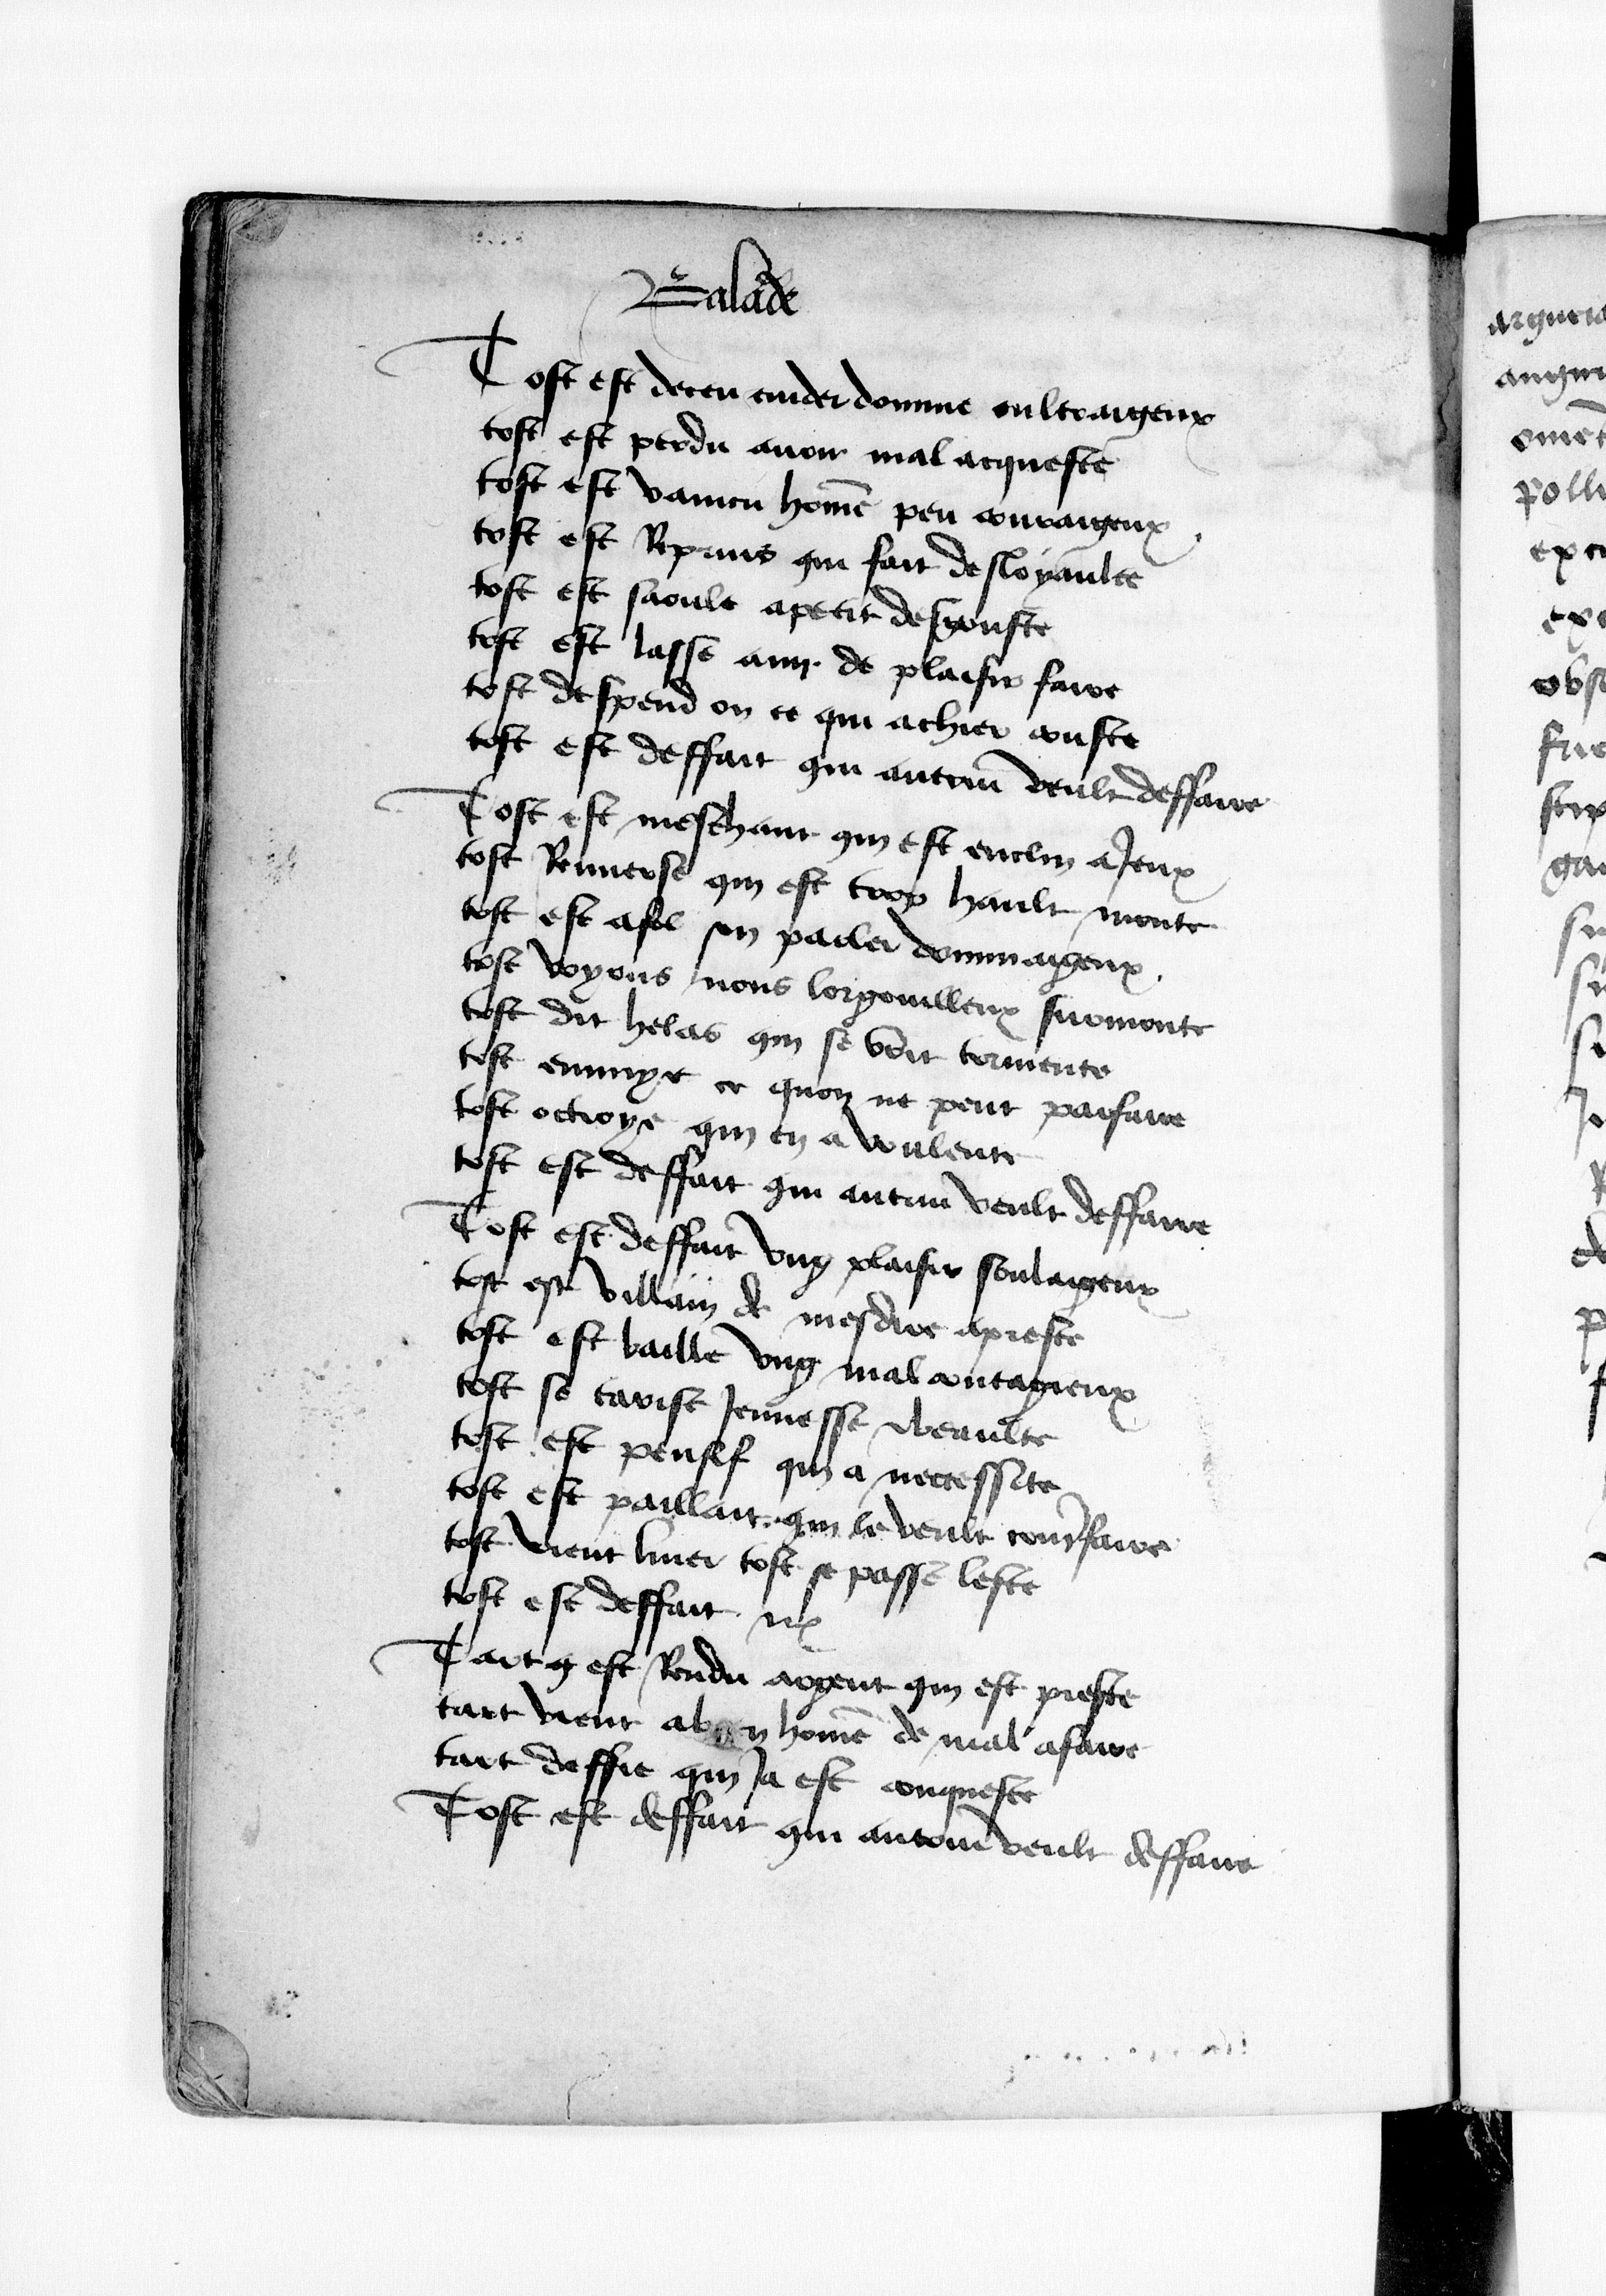 Balade
Tost est deceu cuider domme oultraigeux
tost est perdu auoir mal acqueste
tost est vaincu homē peu couraigeux
tost est Reprins qui fait desloyaulte
tost est saoule apetit desgouste
tost est lasse amy de plaisir faire
tost despend on ce qui a chier couste
tost est deffait qui autruy veult deffaire
Tost est meschant qui est enclin a Jeux
tost Renuerse qui est trop hault monte
tost est a fol son parler dommaigeux
tost voyons nous lorgouilleux surmonte
tost dit helas qui se voit tormente
tost ennuye ce quon ne peut parfaire
tost octroye qui en a voulente
tost est deffait qui autruy veult deffaire
Tost est deffait vng plaisir soulaigeux
tost est villain de mesdire apreste
tost est baille vng mal contagieux
tost se tarist Jeunesse beaulte
tost est pensif qui a neccessite
tost est paillart qui le veult contrefaire
tost vient liuer tost se passe leste
tost est deffait
Tart est Rendu argent qui est preste
tart vient a bon homē de mal afaire
tart deffie qui Ja est conqueste
Tost est deffait qui autruy veult deffaire